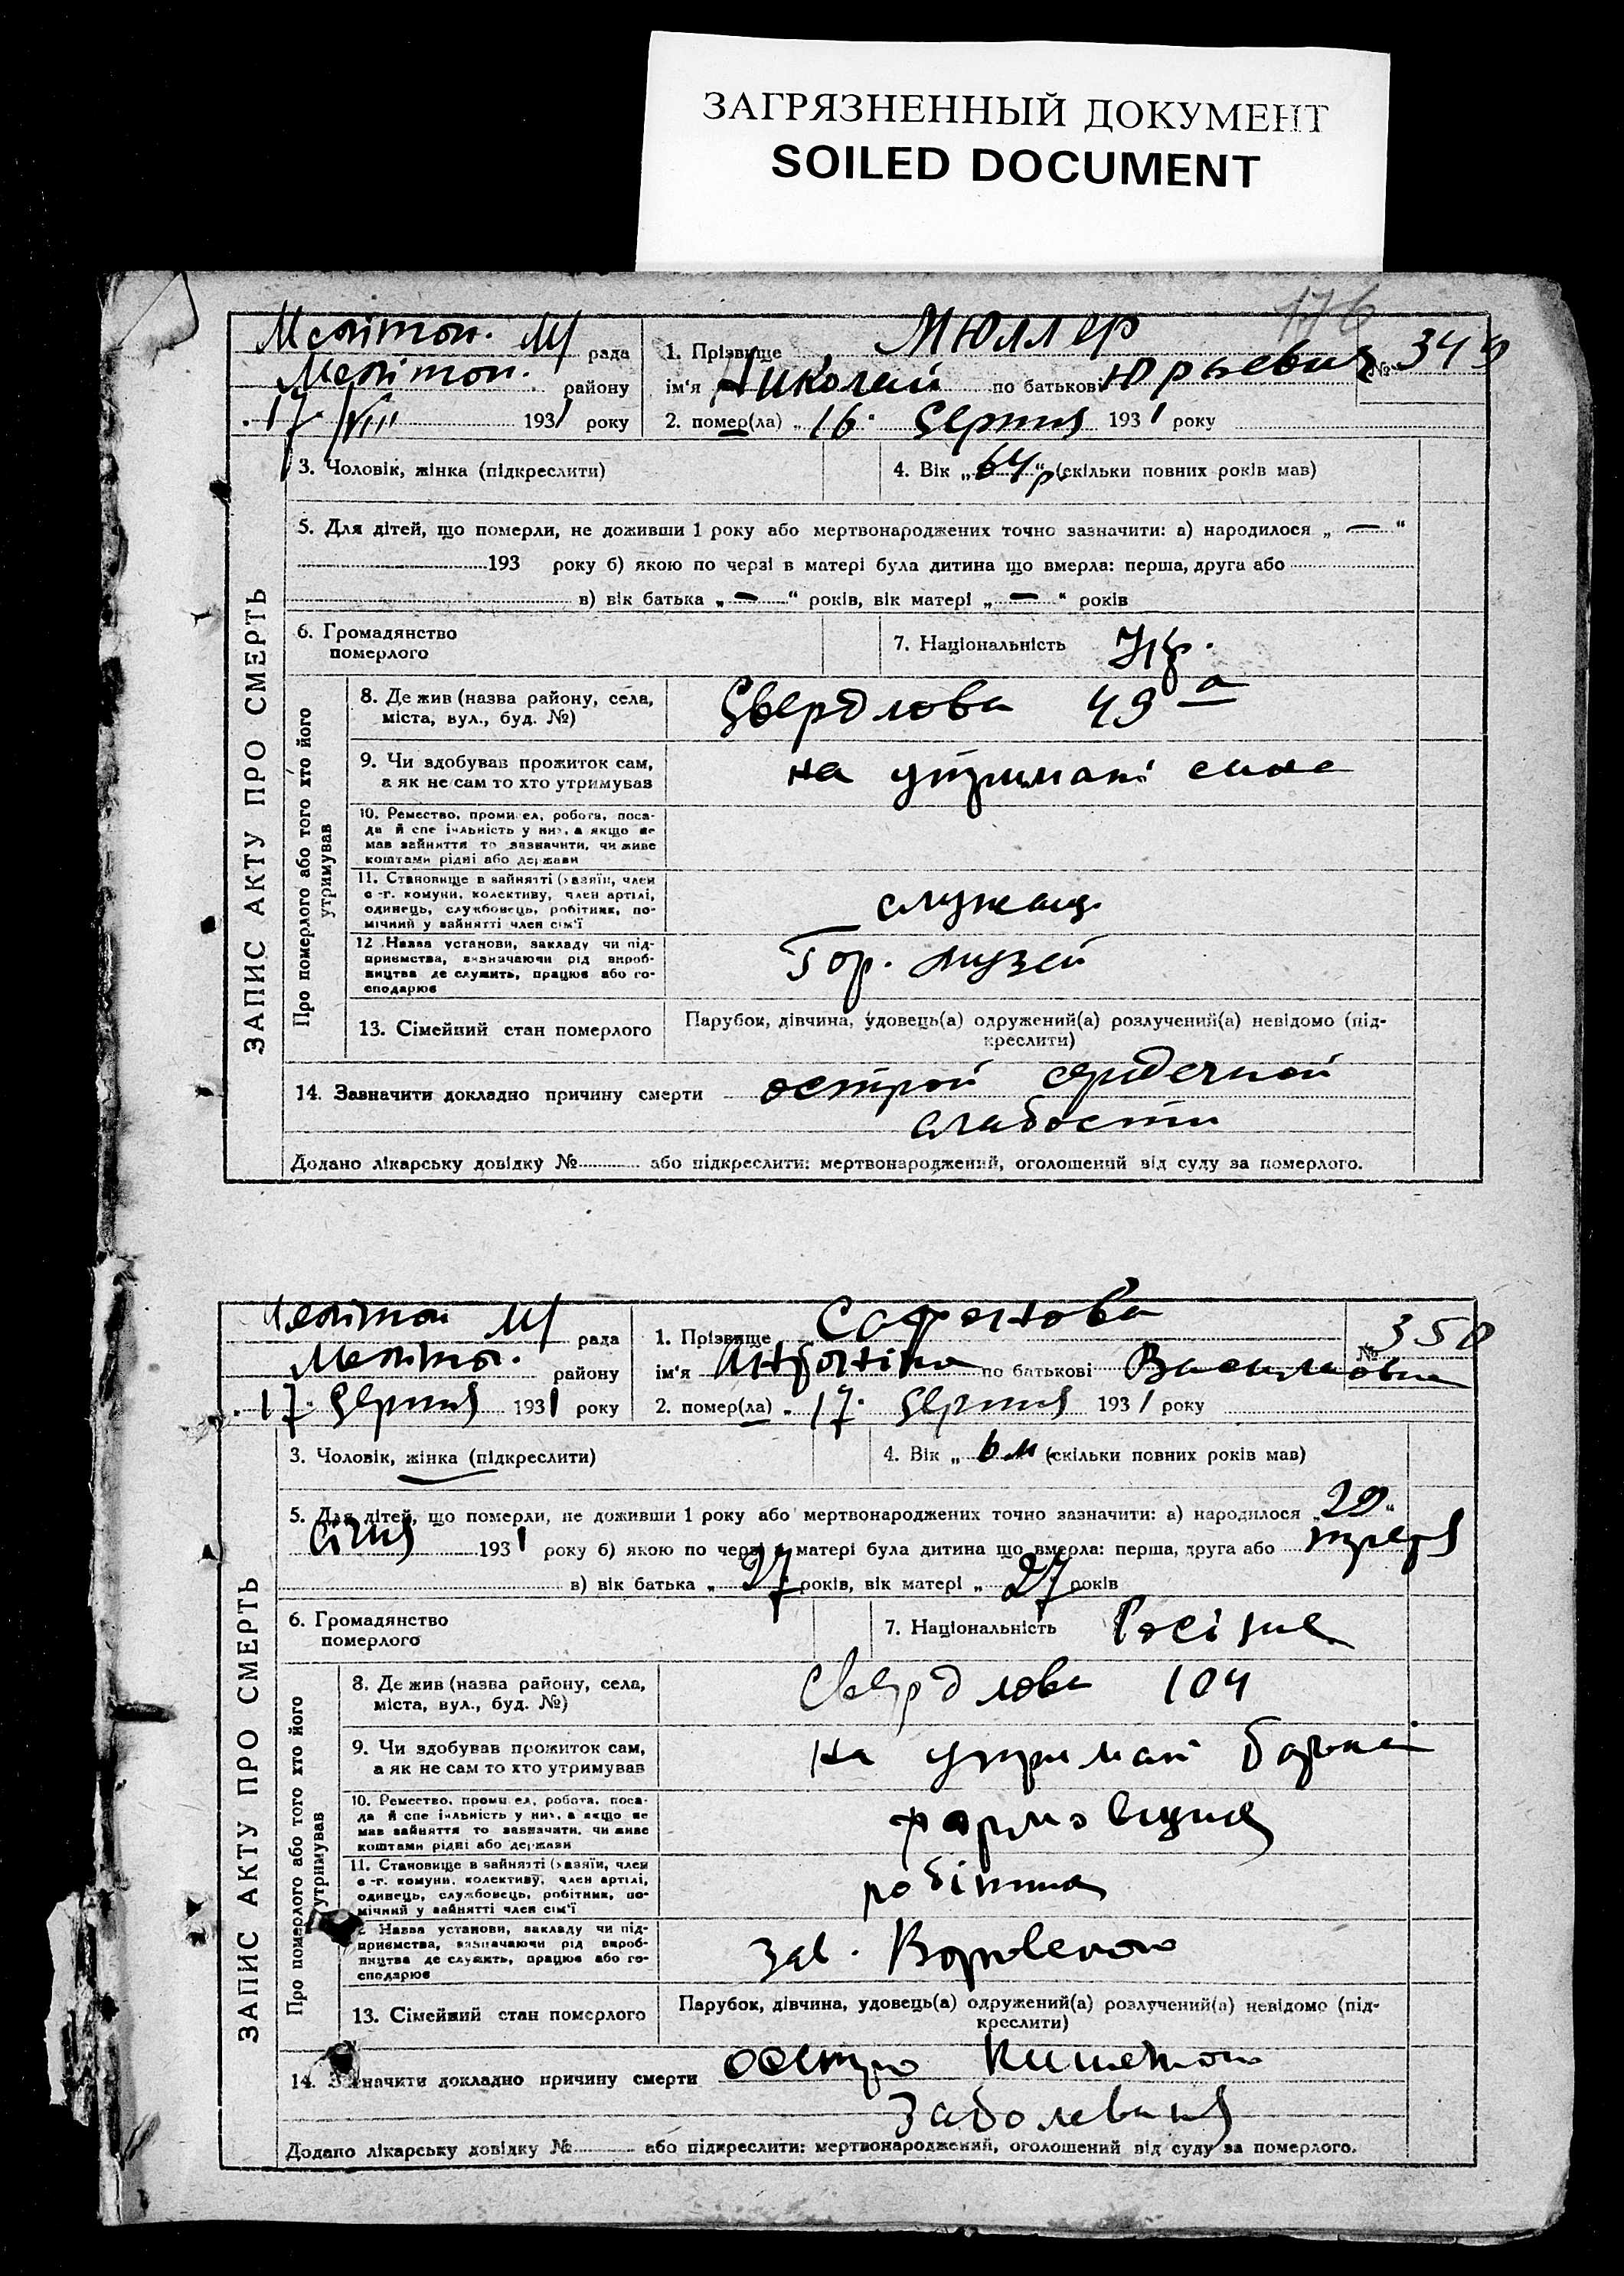 ЗАГРЯЗНЕННЫЙ ДОКУМЕНТ
SOILED DOCUMENT
176
ЗАПИС АКТУ ПРО СМЕРТЬ
Меліто п. М/ рада
Меліто п. району
17/VIII 1931 року
1. Прізвище Мюллер
ім'я Николай по батькові Юрьевич № 349
2. помер(ла) „ 16. Серпня 1931 року
3. Чоловік, жінка (підкреслити)
4. Вік „64 р.“ (скільки повних років мав)
5. Для дітей, що померли, не доживши 1 року або мертвонароджених точно зазначити: а) народилося „ — “
193 року б) якою по черзі в матері була дитина що вмерла: перша, друга або
в) вік батька „ — “ років, вік матері „ — “ років
6. Громадянство
померлого
7. Національність
Про померлого або того хто його
утримував
8. Де жив (назва району, села,
міста, вул., буд. №)
Свердлова 49 а
9. Чи здобував прожиток сам,
а як не сам то хто утримував
на утримані сина
10. Ремество, промисел, робота, поса-
да й спеціяльність у них, а якщо не
мав зайняття то зазначити, чи живе
коштами рідні або держави
11. Становище в зайнятті (хазяїн, член
с.-г. комуни, колективу, член артілі,
одинець, службовець, робітник, по-
мічний у зайнятті член сім'ї
служащ.
12 Назва установи, закладу чи під-
приємства, визначаючи рід вироб-
ництва де служить, працює або го-
сподарює
Гор. музей
13. Сімейний стан померлого
Парубок, дівчина, удовець(а) одружений(а) розлучений(а) невідомо (під-
креслити)
14. Зазначити докладно причину смерти острой сердечной
слабости
Додано лікарську довідку № або підкреслити: мертвонароджений, оголошений від суду за померлого.
ЗАПИС АКТУ ПРО СМЕРТЬ
Мелітоп М/ рада
Меліто п. району
17. Серпня 1931 року
1. Прізвище Сафонова
ім'я по батькові Василиовна № 350
2. помер(ла) „ 17. Серпня 1931 року
3. Чоловік, жінка (підкреслити)
4. Вік „ 6 м (скільки повних років мав)
5. Для дітей, що померли, не доживши 1 року або мертвонароджених точно зазначити: а) народилося „20“
Січня 1931 року б) якою по черзі в матері була дитина що вмерла: перша, друга або третя
в) вік батька „ 27 років, вік матері „ 27 років
6. Громадянство
померлого
7. Національність
Про померлого або того хто його
утримував
8. Де жив (назва району, села,
міста, вул., буд. №)
Свердлова 104
9. Чи здобував прожиток сам,
а як не сам то хто утримував
на утримані батька
10. Ремество, промисел, робота, поса-
да й спеціяльність у них, а якщо не
мав зайняття то зазначити, чи живе
коштами рідні або держави
формовщик
11. Становище в зайнятті (хазяїн, член
с.-г. комуни, колективу, член артілі,
одинець, службовець, робітник, по-
мічний у зайнятті член сім'ї
робітник
Назва установи, закладу чи під-
приємства, визначаючи рід вироб-
ництва де служить, працює або го-
сподарює
Зав.
13. Сімейний стан померлого
Парубок, дівчина, удовець(а) одружений(а) розлучений(а) невідомо (під-
креслити)
14. Зазначити докладно причину смерти
заболевания
Додано лікарську довідку № або підкреслити: мертвонароджений, оголошений від суду за померлого.